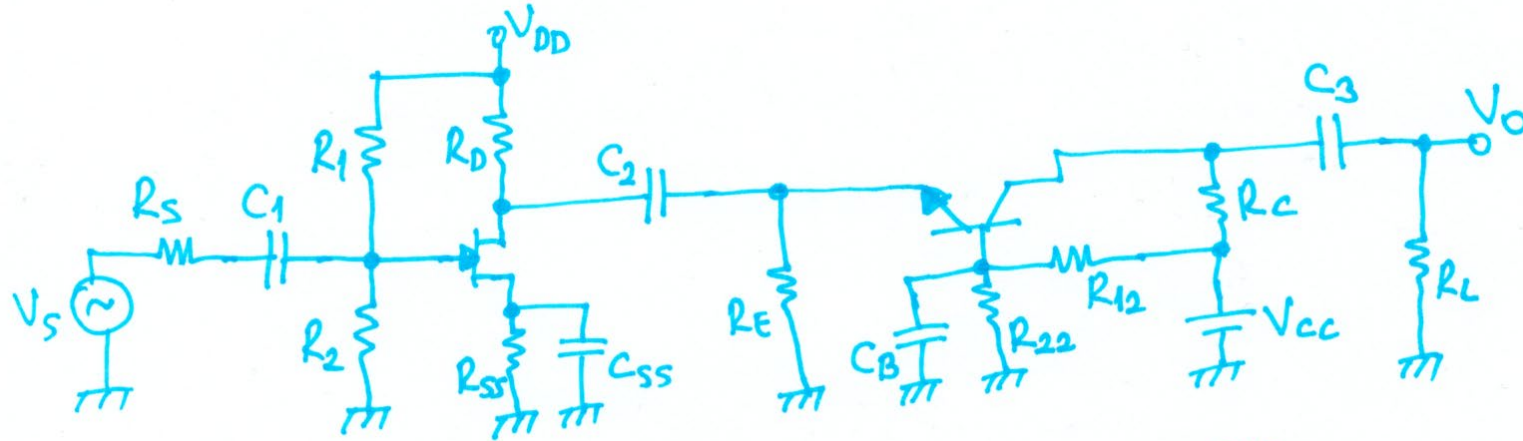 VDD
C3
VO
R1
RD
C2
RS
C1
RC
VS
R2
RSS
CSS
RE
CB
R22
R12
VCC
RL